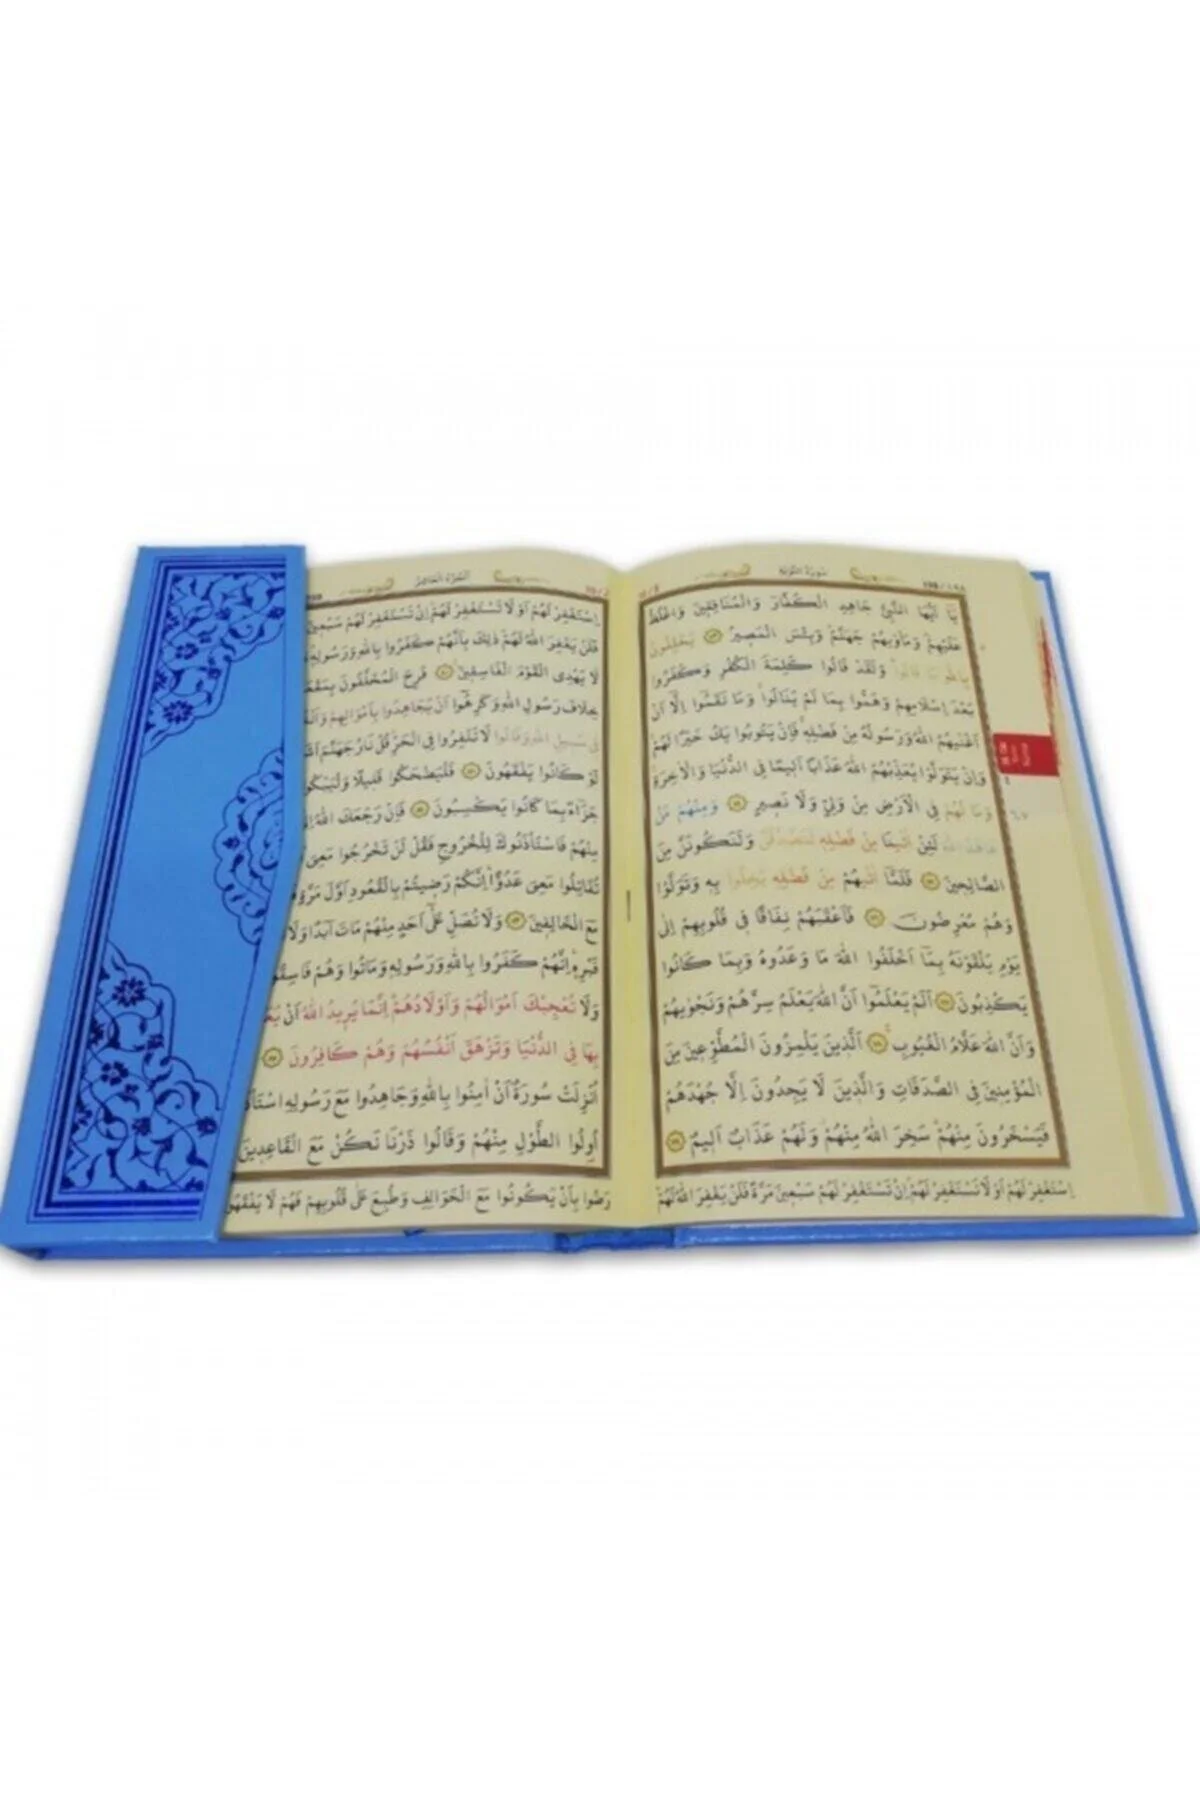 سُورَةُ التَّوْبَةِ
يَا اَيُّهَا النَّبِيُّ جَاهِدِ الْكُفَّارَ وَالْمُنَافِقِينَ وَاغْلُظْ
عَلَيْهِمْ وَمَأْوٰيهُمْ جَهَنَّمُ وَبِئْسَ الْمَصِيرُ ﴿٧٣﴾ يَحْلِفُونَ
بِاللّٰهِ مَا قَالُوا وَلَقَدْ قَالُوا كَلِمَةَ الْكُفْرِ وَكَفَرُوا
بَعْدَ اِسْلَامِهِمْ وَهَمُّوا بِمَا لَمْ يَنَالُوا وَمَا نَقَمُوا اِلَّا اَنْ
اَغْنٰيهُمُ اللّٰهُ وَرَسُولُهُ مِنْ فَضْلِهِ فَاِنْ يَتُوبُوا يَكُ خَيْرًا لَهُمْ
وَاِنْ يَتَوَلَّوْا يُعَذِّبْهُمُ اللّٰهُ عَذَابًا اَلِيمًا فِي الدُّنْيَا وَالْاٰخِرَةِ
وَمَا لَهُمْ فِي الْاَرْضِ مِنْ وَلِيٍّ وَلَا نَصِيرٍ ﴿٧٤﴾ وَمِنْهُمْ مَنْ
عَاهَدَ اللّٰهَ لَئِنْ اٰتٰينَا مِنْ فَضْلِهِ لَنَصَّدَّقَنَّ وَلَنَكُونَنَّ مِنَ
الصَّالِحِينَ ﴿٧٥﴾ فَلَمَّا اٰتٰيهُمْ مِنْ فَضْلِهِ بَخِلُوا بِهِ وَتَوَلَّوْا
وَهُمْ مُعْرِضُونَ ﴿٧٦﴾ فَاَعْقَبَهُمْ نِفَاقًا فِي قُلُوبِهِمْ اِلٰى
يَوْمِ يَلْقَوْنَهُ بِمَا اَخْلَفُوا اللّٰهَ مَا وَعَدُوهُ وَبِمَا كَانُوا
يَكْذِبُونَ ﴿٧٧﴾ اَلَمْ يَعْلَمُوا اَنَّ اللّٰهَ يَعْلَمُ سِرَّهُمْ وَنَجْوٰيهُمْ
وَاَنَّ اللّٰهَ عَلَّامُ الْغُيُوبِ ﴿٧٨﴾ اَلَّذِينَ يَلْمِزُونَ الْمُطَّوِّعِينَ مِنَ
الْمُؤْمِنِينَ فِي الصَّدَقَاتِ وَالَّذِينَ لَا يَجِدُونَ اِلَّا جُهْدَهُمْ
فَيَسْخَرُونَ مِنْهُمْ سَخِرَ اللّٰهُ مِنْهُمْ وَلَهُمْ عَذَابٌ اَلِيمٌ ﴿٧٩﴾
اِسْتَغْفِرْ لَهُمْ اَوْ لَا تَسْتَغْفِرْ لَهُمْ اِنْ تَسْتَغْفِرْ لَهُمْ سَبْعِينَ مَرَّةً فَلَنْ يَغْفِرَ اللّٰهُ لَهُمْ
اَلْجُزْءُ الْعَاشِرُ
اِسْتَغْفِرْ لَهُمْ اَوْ لَا تَسْتَغْفِرْ لَهُمْ اِنْ تَسْتَغْفِرْ لَهُمْ سَبْعِينَ
فَلَنْ يَغْفِرَ اللّٰهُ لَهُمْ ذٰلِكَ بِاَنَّهُمْ كَفَرُوا بِاللّٰهِ وَرَسُولِهِ
لَا يَهْدِي الْقَوْمَ الْفَاسِقِينَ ﴿٨٠﴾ فَرِحَ الْمُخَلَّفُونَ بِمَقْعَ
خِلَافَ رَسُولِ اللّٰهِ وَكَرِهُوا اَنْ يُجَاهِدُوا بِاَمْوَالِهِمْ وَاَنْفُ
فِي سَبِيلِ اللّٰهِ وَقَالُوا لَا تَنْفِرُوا فِي الْحَرِّ قُلْ نَارُ جَهَنَّمَ اَشَ
لَوْ كَانُوا يَفْقَهُونَ ﴿٨١﴾ فَلْيَضْحَكُوا قَلِيلًا وَلْيَبْكُو
جَزَاءً بِمَا كَانُوا يَكْسِبُونَ ﴿٨٢﴾ فَاِنْ رَجَعَكَ اللّٰهُ اِلٰ
مِنْهُمْ فَاسْتَأْذَنُوكَ لِلْخُرُوجِ فَقُلْ لَنْ تَخْرُجُوا مَعِيَ
تُقَاتِلُوا مَعِيَ عَدُوًّا اِنَّكُمْ رَضِيتُمْ بِالْقُعُودِ اَوَّلَ مَرَّةٍ
مَعَ الْخَالِفِينَ ﴿٨٣﴾ وَلَا تُصَلِّ عَلٰى اَحَدٍ مِنْهُمْ مَاتَ اَبَدًا وَلَا
قَبْرِهِ اِنَّهُمْ كَفَرُوا بِاللّٰهِ وَرَسُولِهِ وَمَاتُوا وَهُمْ فَاسِقُ
وَلَا تُعْجِبْكَ اَمْوَالُهُمْ وَاَوْلَادُهُمْ اِنَّمَا يُرِيدُ اللّٰهُ اَنْ يُعَ
بِهَا فِي الدُّنْيَا وَتَزْهَقَ اَنْفُسُهُمْ وَهُمْ كَافِرُونَ ﴿٨٥﴾
اُنْزِلَتْ سُورَةٌ اَنْ اٰمِنُوا بِاللّٰهِ وَجَاهِدُوا مَعَ رَسُولِهِ اسْتَأْذَ
اُولُوا الطَّوْلِ مِنْهُمْ وَقَالُوا ذَرْنَا نَكُنْ مَعَ الْقَاعِدِينَ
رَضُوا بِاَنْ يَكُونُوا مَعَ الْخَوَالِفِ وَطُبِعَ عَلٰى قُلُوبِهِمْ فَهُمْ لَا يَفْقَهُونَ